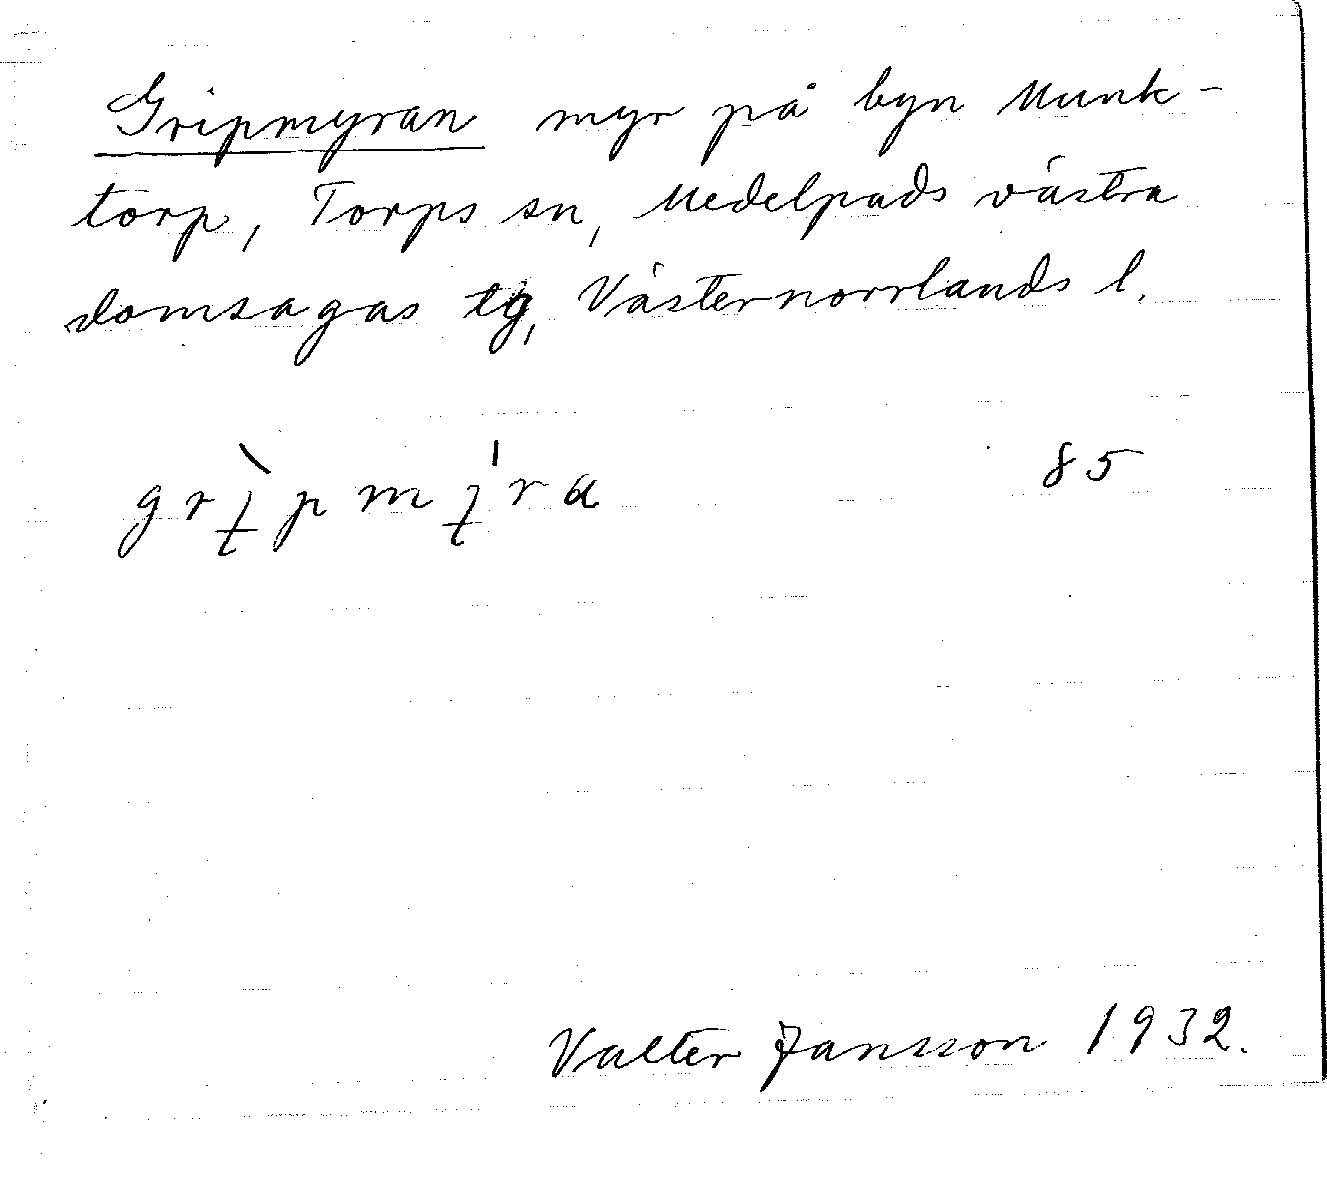 Gripmyran myr på byn Munk-
torp, Torps sn, Medelpads västra
domsagas tg, Västernorrlands l.
85
Valter Jansson 1932.